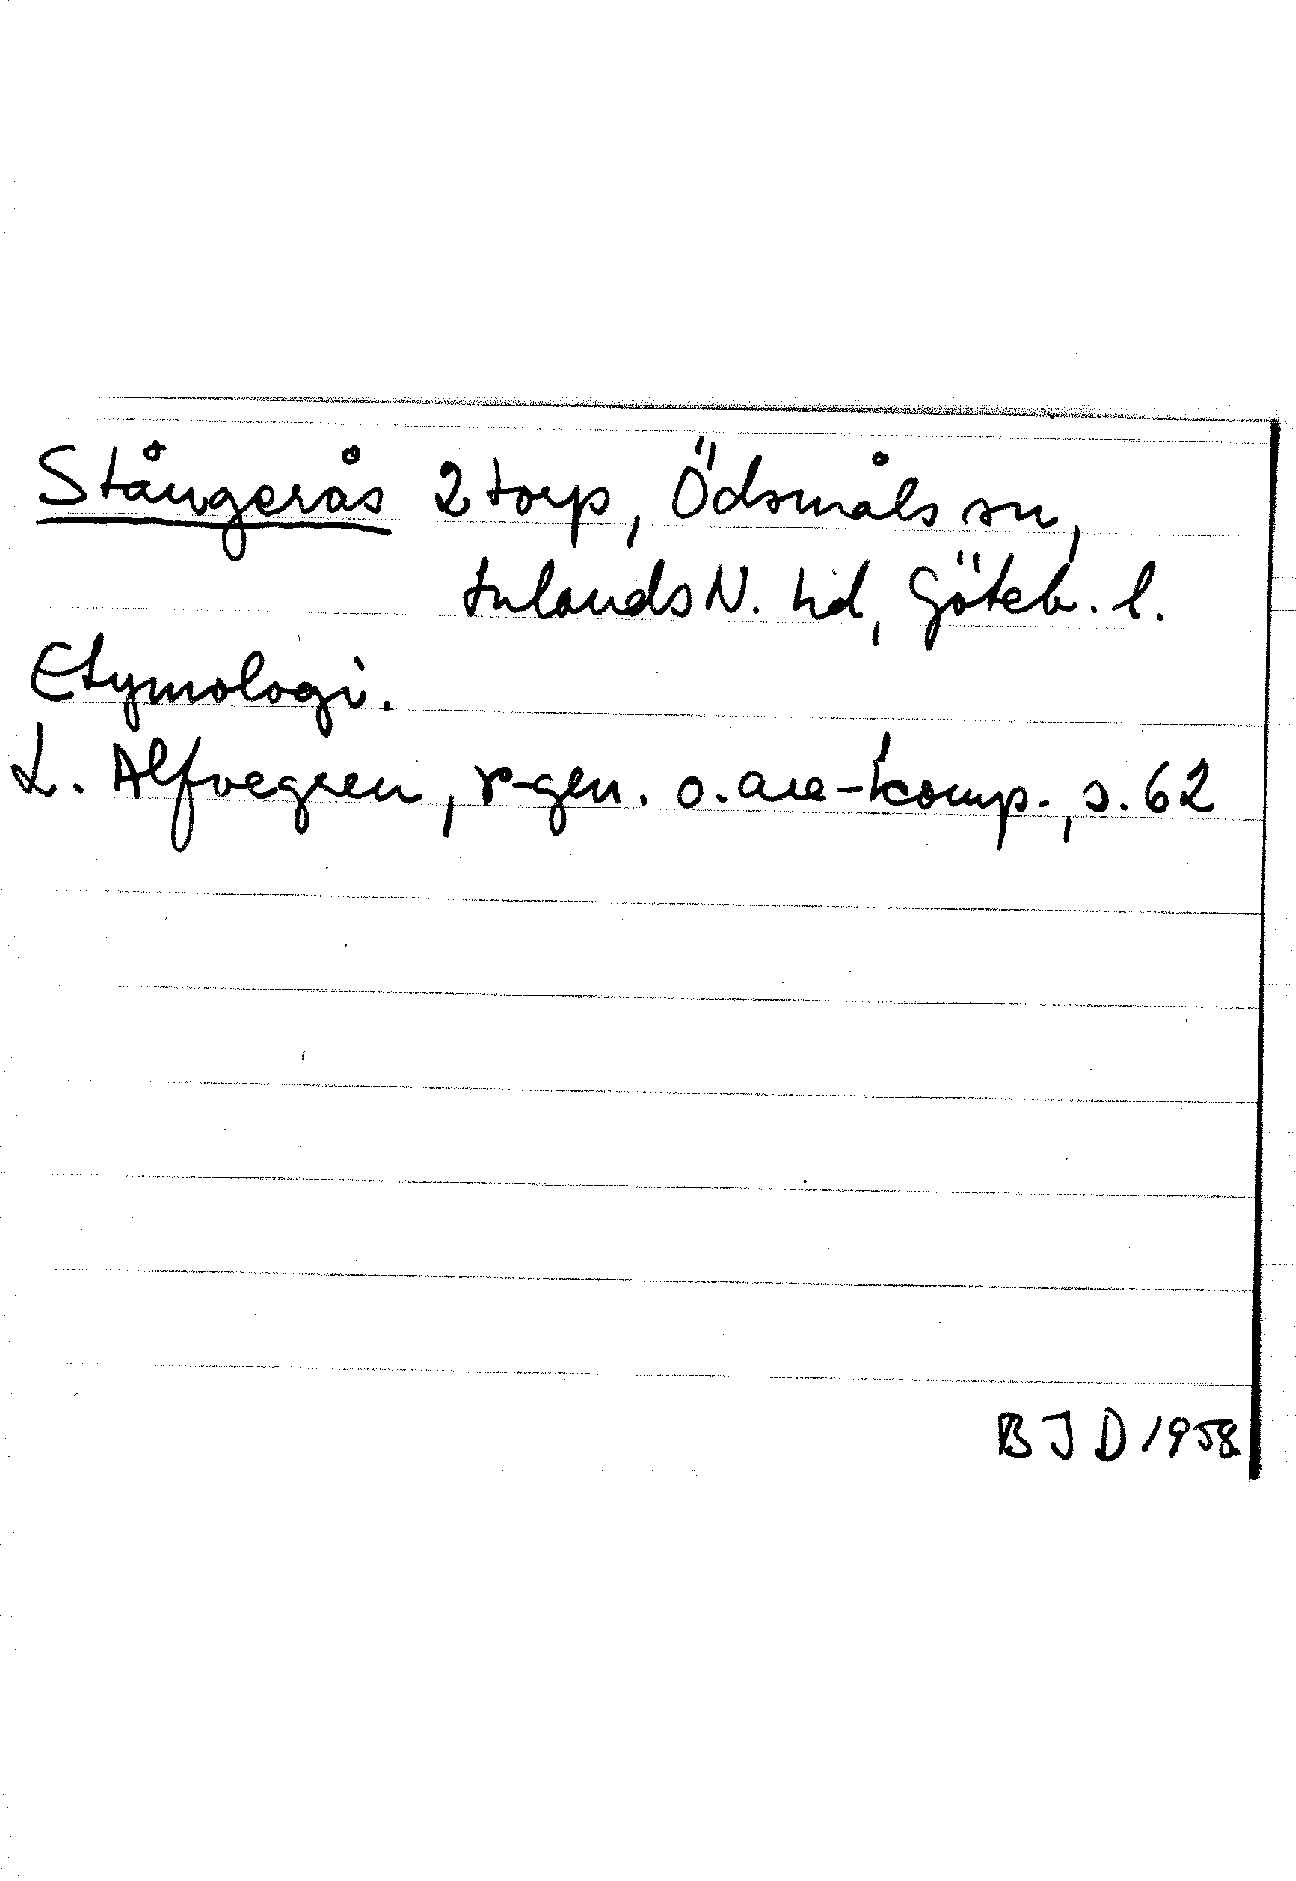 Stångerås 2 torp, Ödsmåls sn,
Inlands N. hd, Göteb. l.
Etymologi.
L. Alfvegren, r-gen. o. are-komp., s. 62
BJD 1958